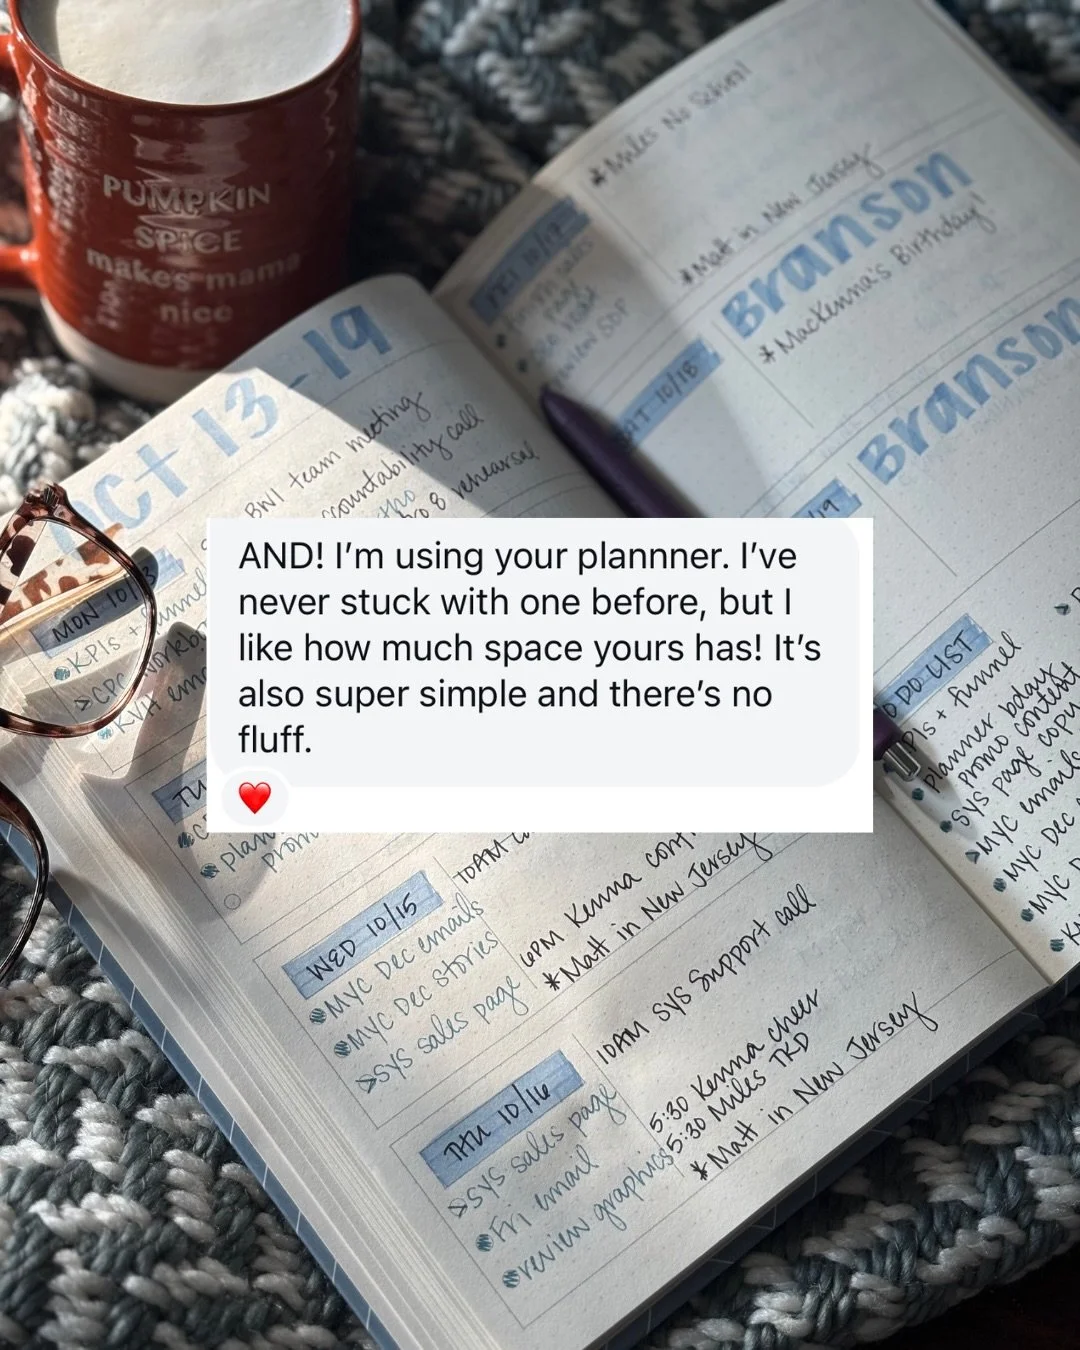 PUMPKIN
SPICE
makes mama
nice
OCT 13-19
BNI team meeting
accountability call
8 rehearsal
MON 10/13
KPIs + funnel
CPC workbo
KVH ema
TU
plan
prom
10AM
WED 10/15
MYC Dec emails
MYC Dec Stories
SYS sales page
6PM Kenna
*Matt in New Jersey
THU 10/16
SYS sales page
Fri email
review graphics
10AM SYS Support call
5:30 Kenna cheer
5:30 Miles TKD
*Matt in New Jersey
FRI 10/17
review SOP
*Miles No School
*Matt in New Jersey
SAT 10/18
Branson
*MacKenna's Birthday!
/19
Branson
O DO LIST
PIs + funnel
planner bday
promo content
SYS page copy
MYC emails
MYC Dec
MYC D
AND! I’m using your plannner. I’ve
never stuck with one before, but I
like how much space yours has! It’s
also super simple and there’s no
fluff.